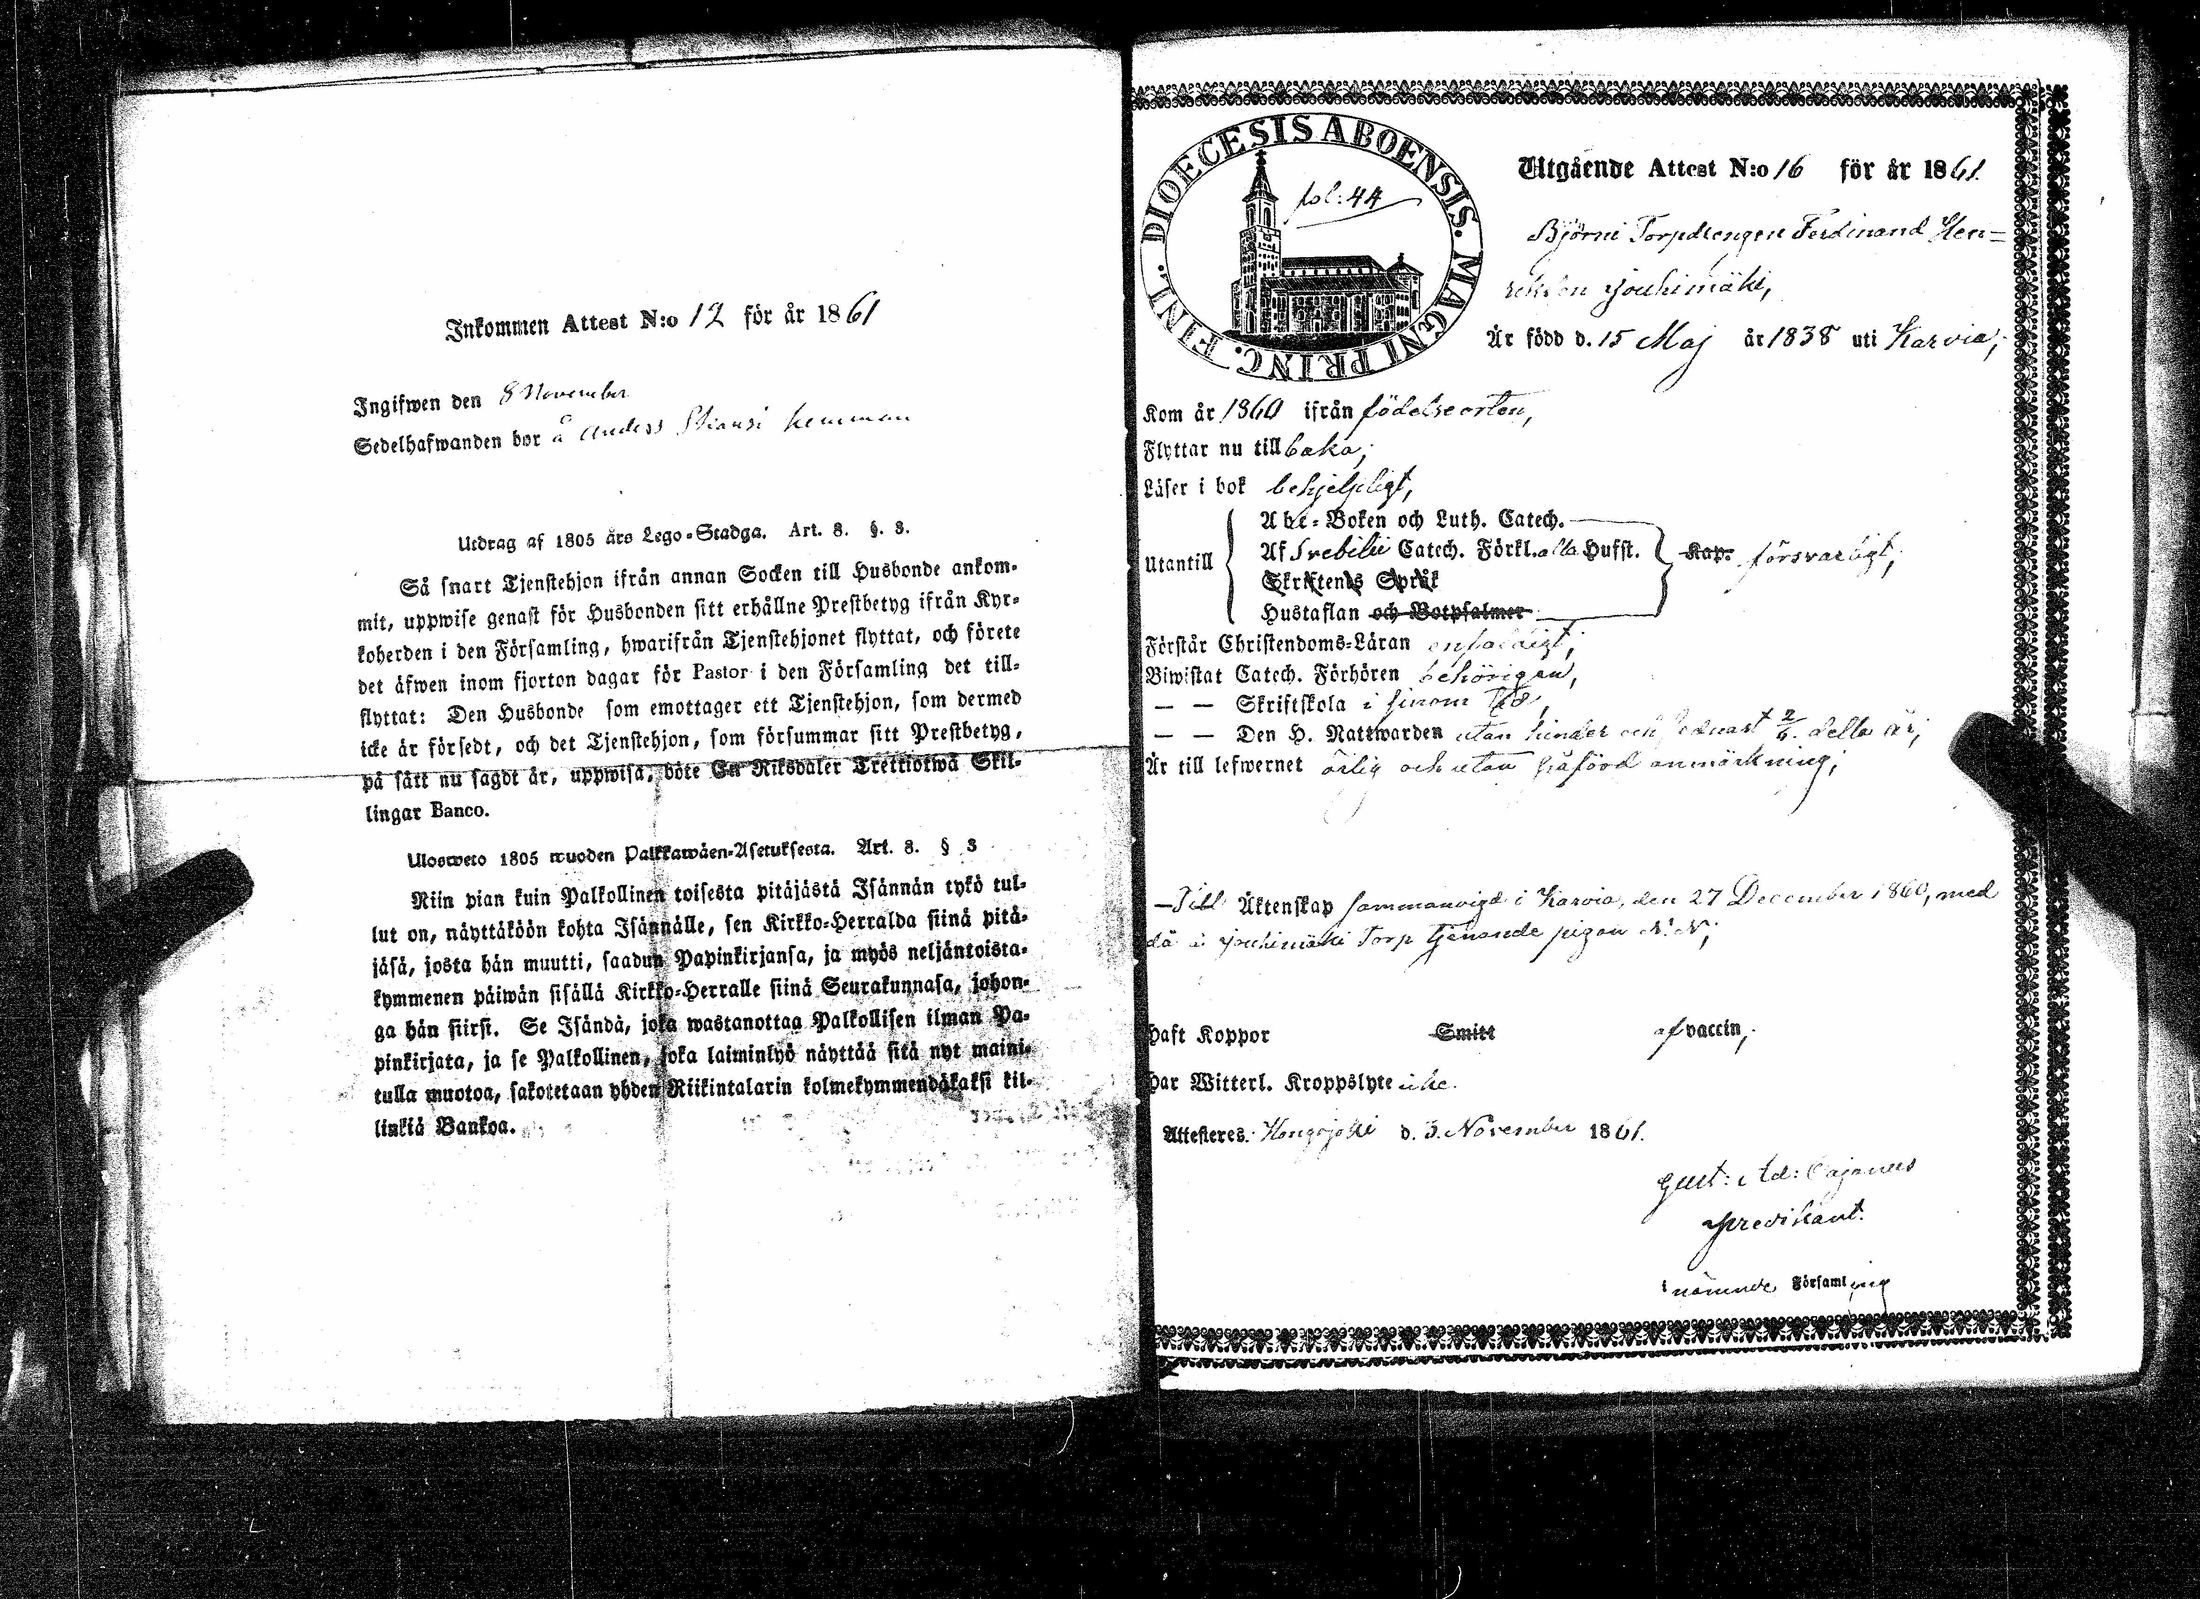 Inkommen Attest N:o 12 för år 1861
Ingifwen den 8 November
Sedelhafwanden bor å Anders hemman
Utdrag af 1805 års Lego-Stadga. Art. 8. §. 3.
Så snart Tjenstehjon ifrån annan Socken till Husbonde ankom-
mit, uppwise genast för Husbonden sitt erhållne Prestbetyg ifrån Kyr-
koherden i den Församling, hwarifrån Tjenstehjonet flyttat, och förete
det äfwen inom fjorton dagar för Pastor i den Församling det till-
flyttat: Den Husbonde som emottager ett Tjenstehjon, som dermed
icke är försedt, och det Tjenstehjon, som försummar sitt Prestbetyg,
på sätt nu sagdt är, uppwisa, böte En Riksdaler Trettiotwå Skil-
lingar Banco.
Ulosweto 1805 wuoden Palkkawäen-Asetuksesta. Art. 8. § 3
Niin pian kuin Palkollinen toisesta pitäjästä Isännän tykö tul-
lut on, näyttäköön kohta Isännälle, sen Kirkko-Herralda siinä pitä-
jäsä, josta hän muutti, saadun Papinkirjansa, ja myös neljäntoista-
kymmenen päiwän sisällä Kirkko-Herralle siinä Seurakunnasa, johon-
ga hän siirsi. Se Isändä, joka wastanottaa Palkollisen ilman Pa-
pinkirjata, ja se Palkollinen, joka laiminlyö näyttää sitä nyt maini-
tulla muotoa, sakotetaan yhden Riikintalarin kolmekymmendäkaksi kil-
linkiä Bankoa.
DIOECESIS ABOENSIS. MAGNI PRINC. FINL.
fol: 44
Utgående Attest N:o 16 för år 1861.
Björni Torpdrengen Ferdinand Hen=
riksson Jouhimäki,
Är född d. 15 Maj år 1838 uti Karvia;
Kom år 1860 ifrån födelseorten,
Flyttar nu tillbaka;
Läser i bok behjelpligt,
Utantill
Abc-Boken och Luth. Catech.
Af Svebilii Catech. Förkl. alla Hufst.
Skriftens Språk
Hustaflan och Botpsalmer
Kap. försvarligt;
Förstår Christendoms-Läran enfaldigt;
Biwistat Catech. Förhören behörigen,
— — Skriftskola i sinom tid,
— — Den H. Nattwarden utan hinder och sednast 2/6. detta år;
Är till lefwernet ärlig och utan påförd anmärkning;
— Till Äktenskap sammanvigd i Karvia, den 27 December 1860, med
då å Jouhimäki Torp tjenande pigan N. N;
Haft Koppor Smitt af vaccin;
Har Witterl. Kroppslyte icke.
Attesteres. Hongojoki d. 3. November 1861.
Gust: Ad: Cajanus
Predikant.
i nämnde Församling